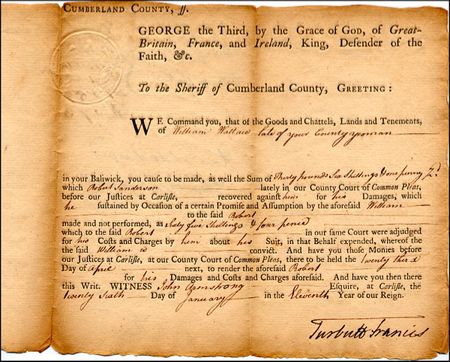 CUMBERLAND COUNTY, ss.
GEORGE the Third, by the Grace of GOD, of Great-
Britain, France, and Ireland, King, Defender of the
Faith, &c.
To the Sheriff of Cumberland County, GREETING:
WE Command you, that of the Goods and Chattels, Lands and Tenements,
of William Wallace late of your County yeoman
in your Bailiwick, you cause to be made, as well the Sum of Thirty pounds Six Shillings & one penny
which Robert Sanderson lately in our County Court of Common Pleas,
before our Justices at Carlisle, recovered against him for his Damages, which
he sustained by Occasion of a certain Promise and Assumption by the aforesaid William
to the said Robert
made and not performed, as Sixty four Shillings & four pence
which to the said Robert in our same Court were adjudged
for his Costs and Charges by him about his Suit, in that Behalf expended, whereof
the said William is convict. And have you those Monies before
our Justices at Carlisle, at our County Court of Common Pleas, there to be held the twenty third
Day of April next, to render the aforesaid Robert
for his Damages and Costs and Charges aforesaid. And have you then there
this Writ. WITNESS John Armstrong Esquire, at Carlisle, the
twenty sixth Day of January in the Eleventh Year of our Reign.
Turbutt Francis